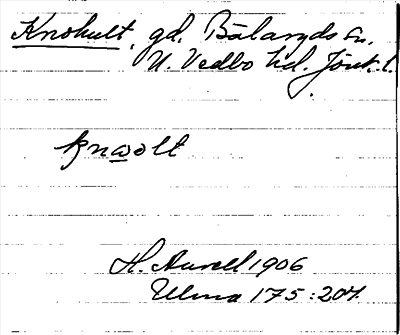 Knohult, gd. Bälaryds sn,
N. Vedbo hd. Jönk. l.
knωolt
H. Aurell 1906
Ulma 175:207.